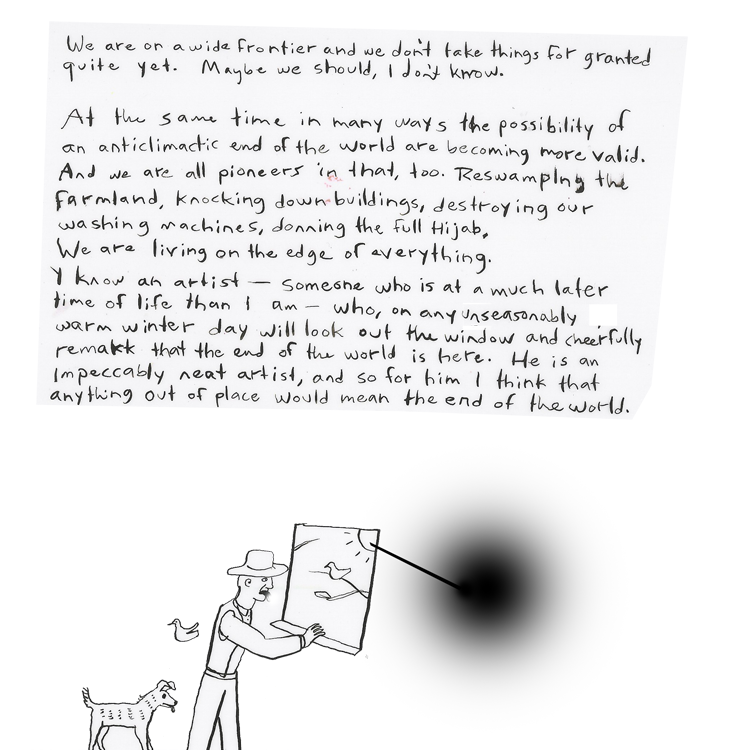 We are on a wide frontier and we don't take things for granted
quite yet. Maybe we should, I don't know.
At the same time in many ways the possibility of
an anticlimactic end of the world are becoming more valid.
And we are all pioneers in that, too. Reswamping the
farmland, knocking down buildings, destroying our
washing machines, donning the full Hijab.
We are living on the edge of everything.
I know an artist — someone who is at a much later
time of life than I am — who, on any unseasonably
warm winter day will look out the window and cheerfully
remark that the end of the world is here. He is an
impeccably neat artist, and so for him I think that
anything out of place would mean the end of the world.